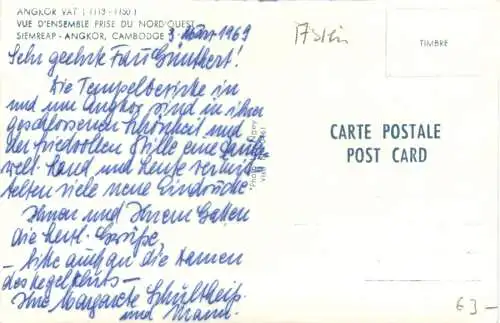 ANGKOR VAT (1113-1150)
VUE D'ENSEMBLE PRISE DU NORD OUEST
SIEMREAP - ANGKOR, CAMBODGE
3. März 1969
Sehr geehrte Frau Günthert!
Die Tempelbezirke in
und um Angkor sind in ihrer
geschlossenen Schönheit und
der friedvollen Stille eine
welt. Land und Leute vermit-
telten viele neue Eindrücke.
Ihnen und Ihrem Gatten
die herzl. Grüße,
- bitte auch an die Damen
des Kegelklubs -
Ihre Margarete Schultheiß
und Mann.
TIMBRE
CARTE POSTALE
POST CARD
63-